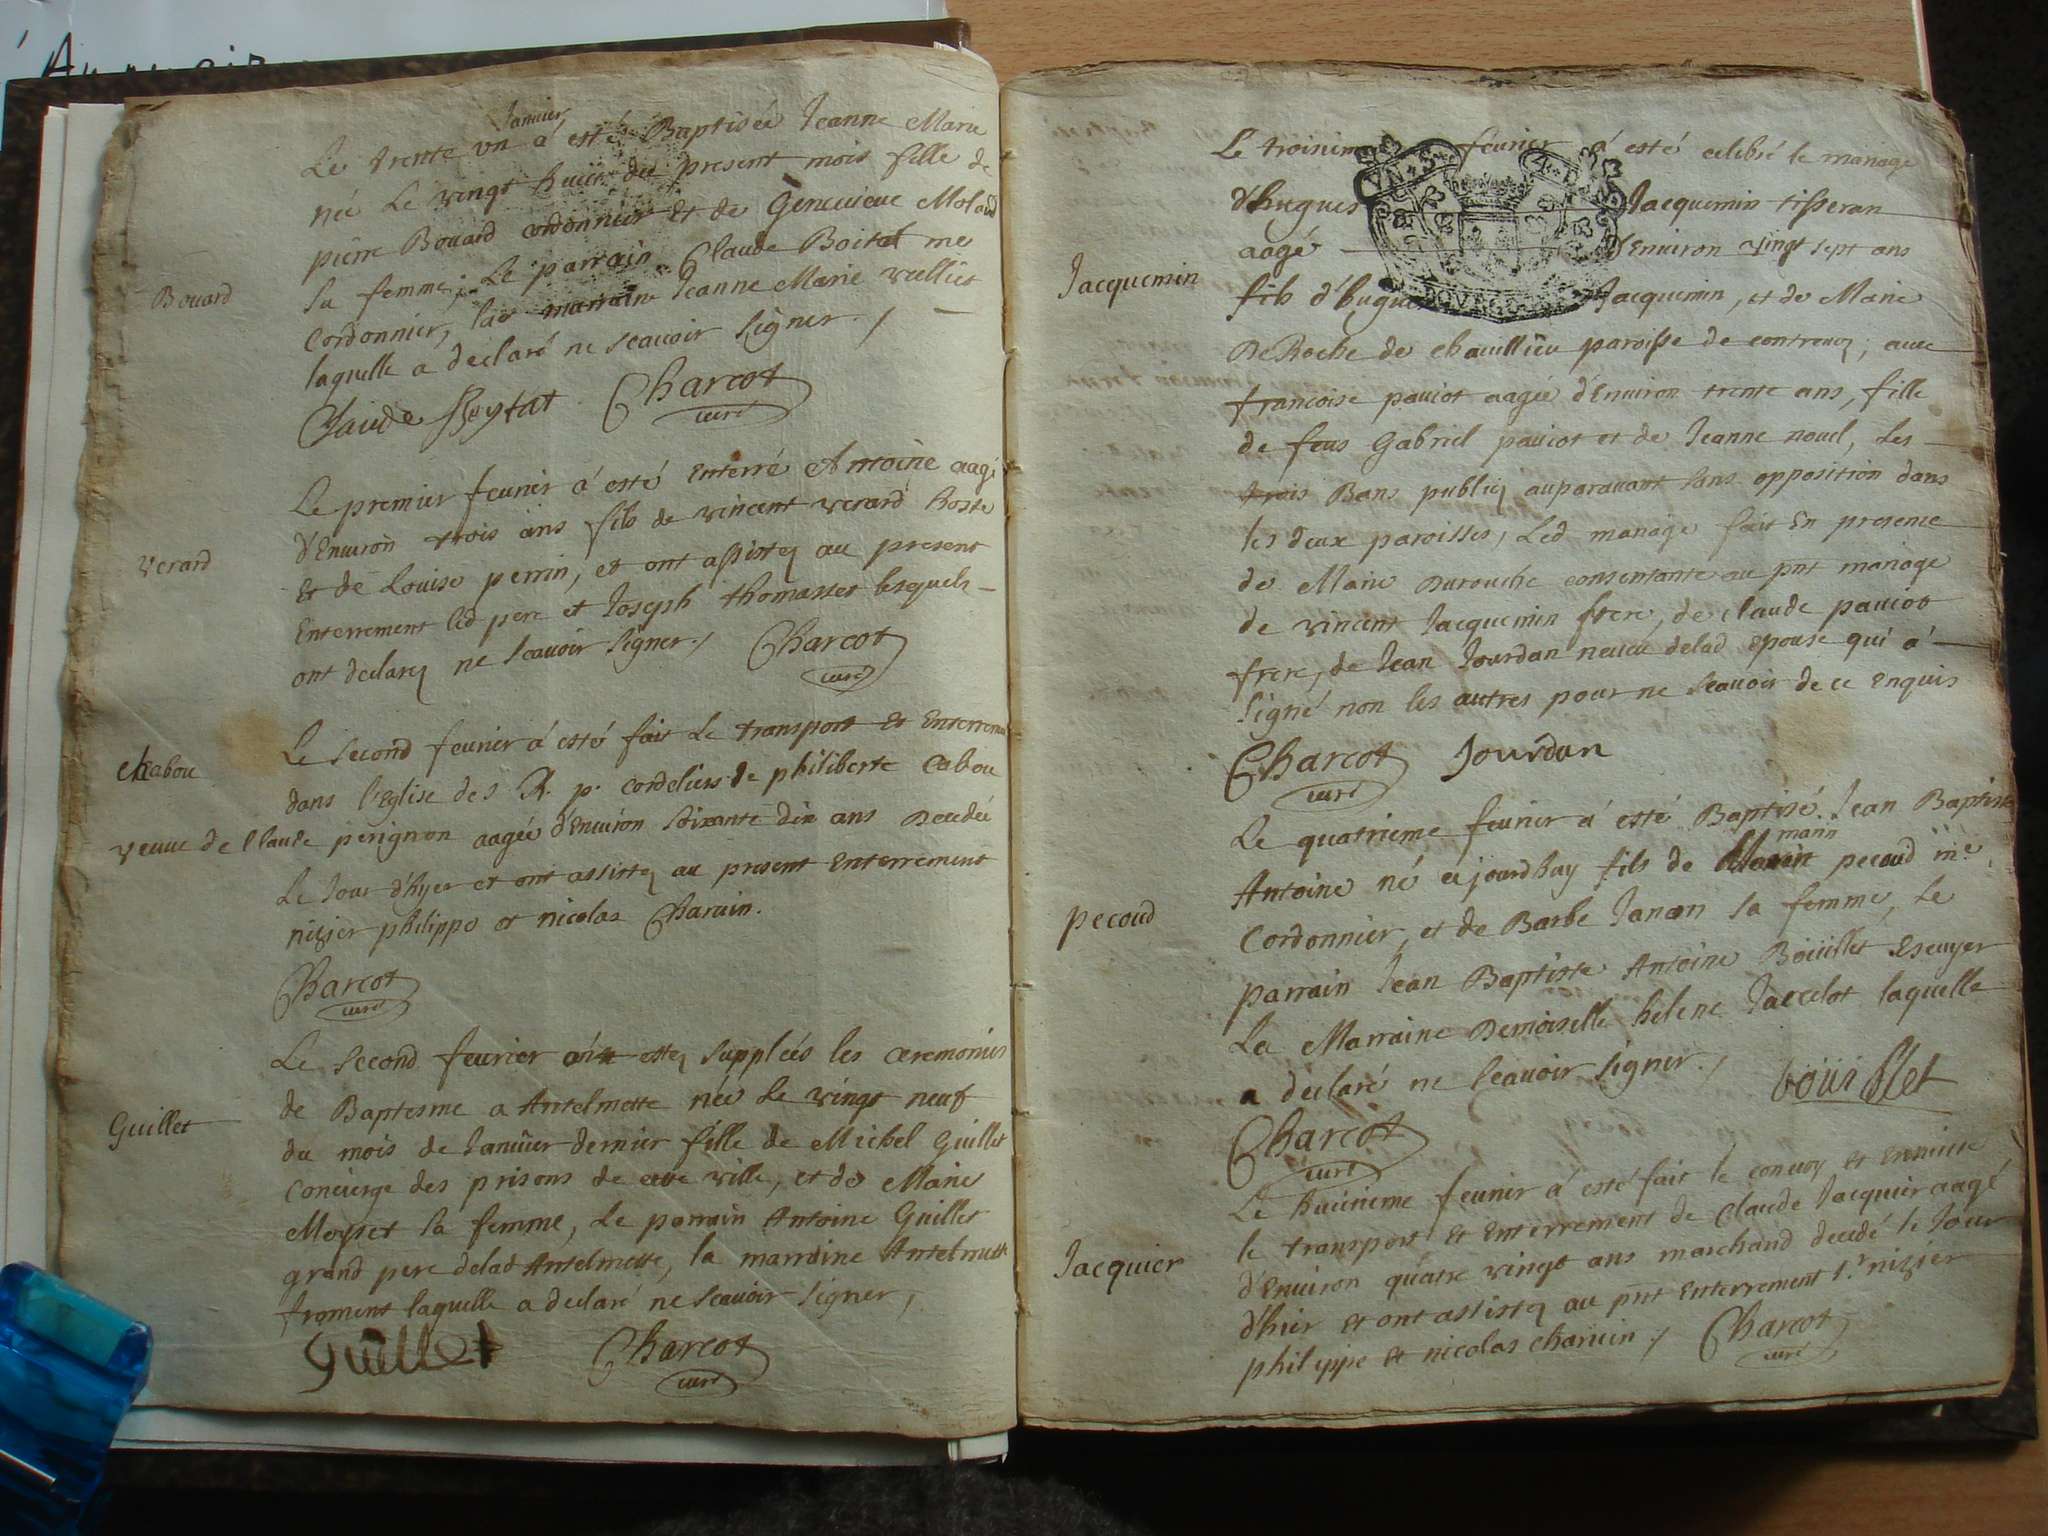 Janvier
Le trente un a esté Baptisée Jeanne Marie
née Le vingt huict du present mois fille de
pierre Bouard cordonnier et de Genevieve Molard
Bouard
sa femme, Le parrain Claude Boitat me
Cordonnier, la marraine Jeanne Marie vulliet
laquelle a declaré ne scauoir signer ./
Claude Boytat Charcot
curé
Le premier feurier a esté Enterré Antoine aagé
d'Enuiron trois ans fils de vincent verard hoste
verard
Et de Louise perrin, et ont assistez au present
Enterrement led pere et Joseph thomasset lesquels
ont declarez ne scauoir signer ./ Charcot
curé
Le second feurier a esté fait Le transport et Enterrement
chabou
dans l'Eglise des R. p. cordeliers de philiberte Cabou
veuue de Claude perignon aagée d'Enuiron soixante dix ans Decedée
Le Jour d'hyer et ont assistez au present Enterrement
nizier philippe et nicolas Charuin.
Charcot
curé
Le second feurier esté supplées les ceremonies
de Baptesme a Antelmette née Le vingt neuf
Guillet
du mois de Januier dernier fille de Michel Guillet
Concierge des prisons de cette ville, et de Marie
Moyret sa femme, Le parrain Antoine Guillet
grand pere delad Antelmette, la marraine Antelmette
froment laquelle a declaré ne scauoir signer,
Guillet Charcot
curé
Le troisieme feurier a esté celebré le mariage
d'hugues Jacquemin tisseran
aagé d'Enuiron vingt sept ans
Jacquemin
fils d'hugues Jacquemin, et de Marie
DeRoche de chauillieu paroisse de contreuoz, auec
francoise pauiot aagée d'Enuiron trente ans, fille
de feus Gabriel pauiot et de Jeanne nouel, Les
trois Bans publiez auparauant sans opposition dans
les deux paroisses, Led mariage fait En presence
de Marie Duroche consentante au pnt mariage
de vincent Jacquemin frere, de claude pauiot
frere, de Jean Jourdan neueu delad epouse qui a
signé non les autres pour ne scauoir de ce Enquis
Charcot Jourdan
curé
Le quatrieme feurier a esté Baptisé Jean Baptiste
marin
Antoine né ajourdhuy fils de Marin pecoud me
pecoud
Cordonnier, et de Barbe Janan sa femme, Le
parrain Jean Baptiste Antoine Boüillet Escuyer
La Marraine Demoiselle helene Jaccelot laquelle
a declaré ne scauoir signer ./ boüillet
Charcot
curé
Le huictieme feurier a esté fait le conuoy et
le transport et Enterrement de Claude Jacquier aagé
Jacquier
d'Enuiron quatre vingt ans marchand decedé le Jour
d'hier et ont assistez au pnt Enterrement sr nizier
philippe et nicolas charuin ./ Charcot
curé